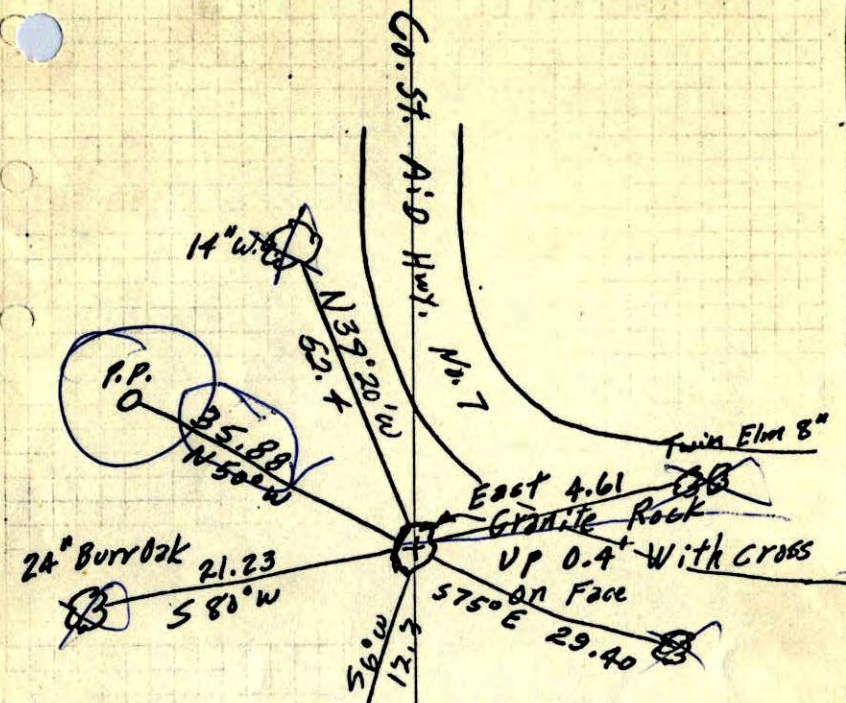 Co. St. Aid Hwy. No. 7
14" W.
N39°20'W
52.4
P.P.
35.88
N50°W
Twin Elm 8"
East 4.61
Granite Rock
Up 0.4' With cross
on Face
24" Burr Oak
21.23
S80°W
S75°E 29.40
S6°W
12.3